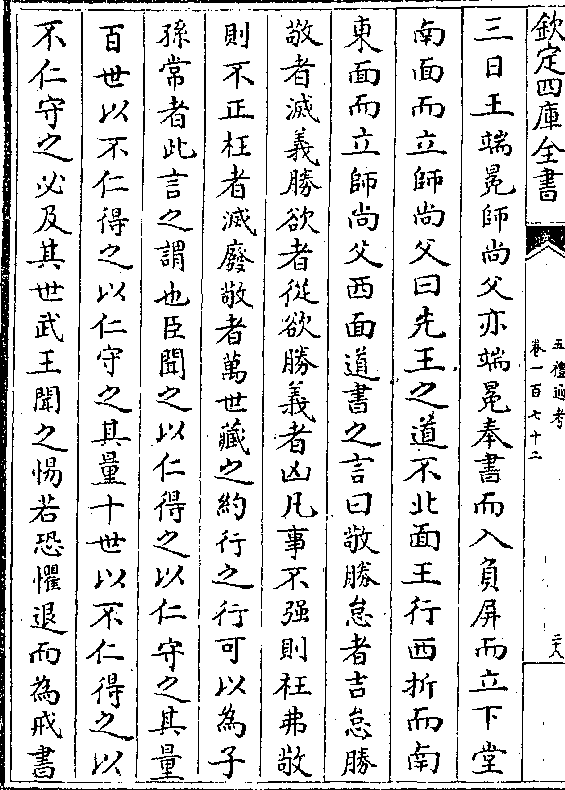 欽定四庫全書
五禮通考
卷一百七十二
三日王端冕師尚父亦端冕奉書而入負屏而立下堂
南面而立師尚父曰先王之道不北面王行西折而南
東面而立師尚父西面道書之言曰敬勝怠者吉怠勝
敬者滅義勝欲者從欲勝義者凶凡事不强則枉弗敬
則不正枉者滅廢敬者萬世藏之約行之行可以為子
孫常者此言之謂也臣聞之以仁得之以仁守之其量
百世以不仁得之以仁守之其量十世以不仁得之以
不仁守之必及其世武王聞之惕若恐懼退而為戒書